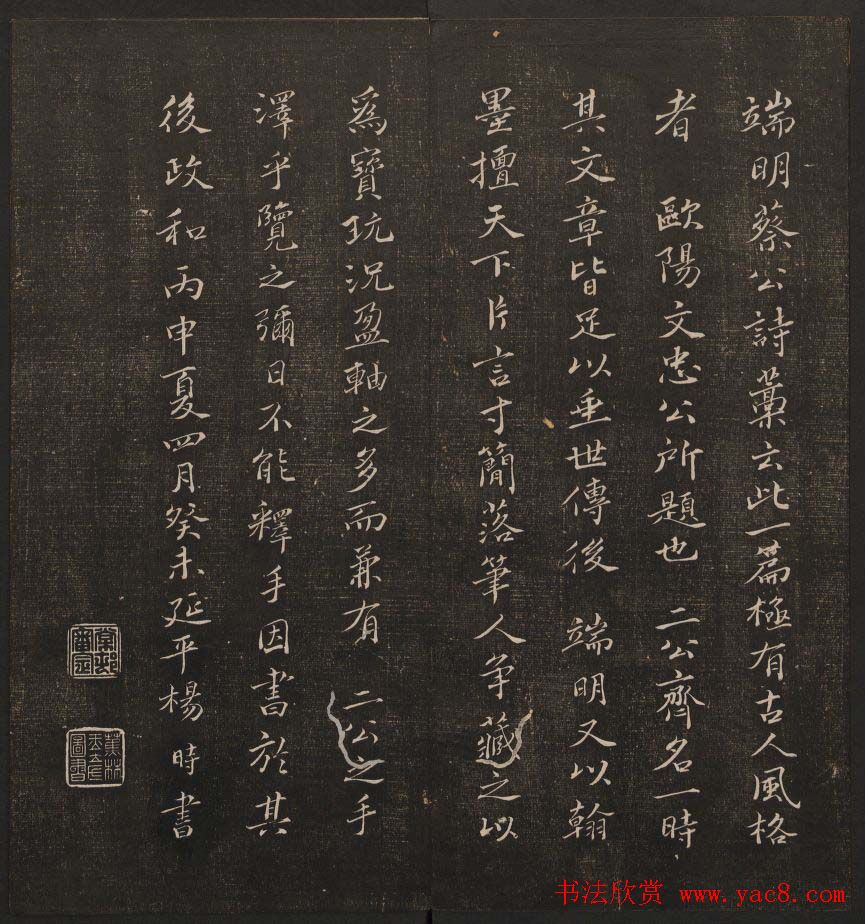 端明蔡公詩藁云此一篇極有古人風格
者 歐陽文忠公所題也 二公齊名一時
其文章皆足以垂世傳後 端明又以翰
墨擅天下片言寸簡落筆人争藏之以
爲寶玩況盈軸之多而兼有 二公之手
澤乎覽之彌日不能釋手因書於其
後政和丙申夏四月癸未延平楊 時書
蕉林
圖書
书法欣赏 www.yac8.com